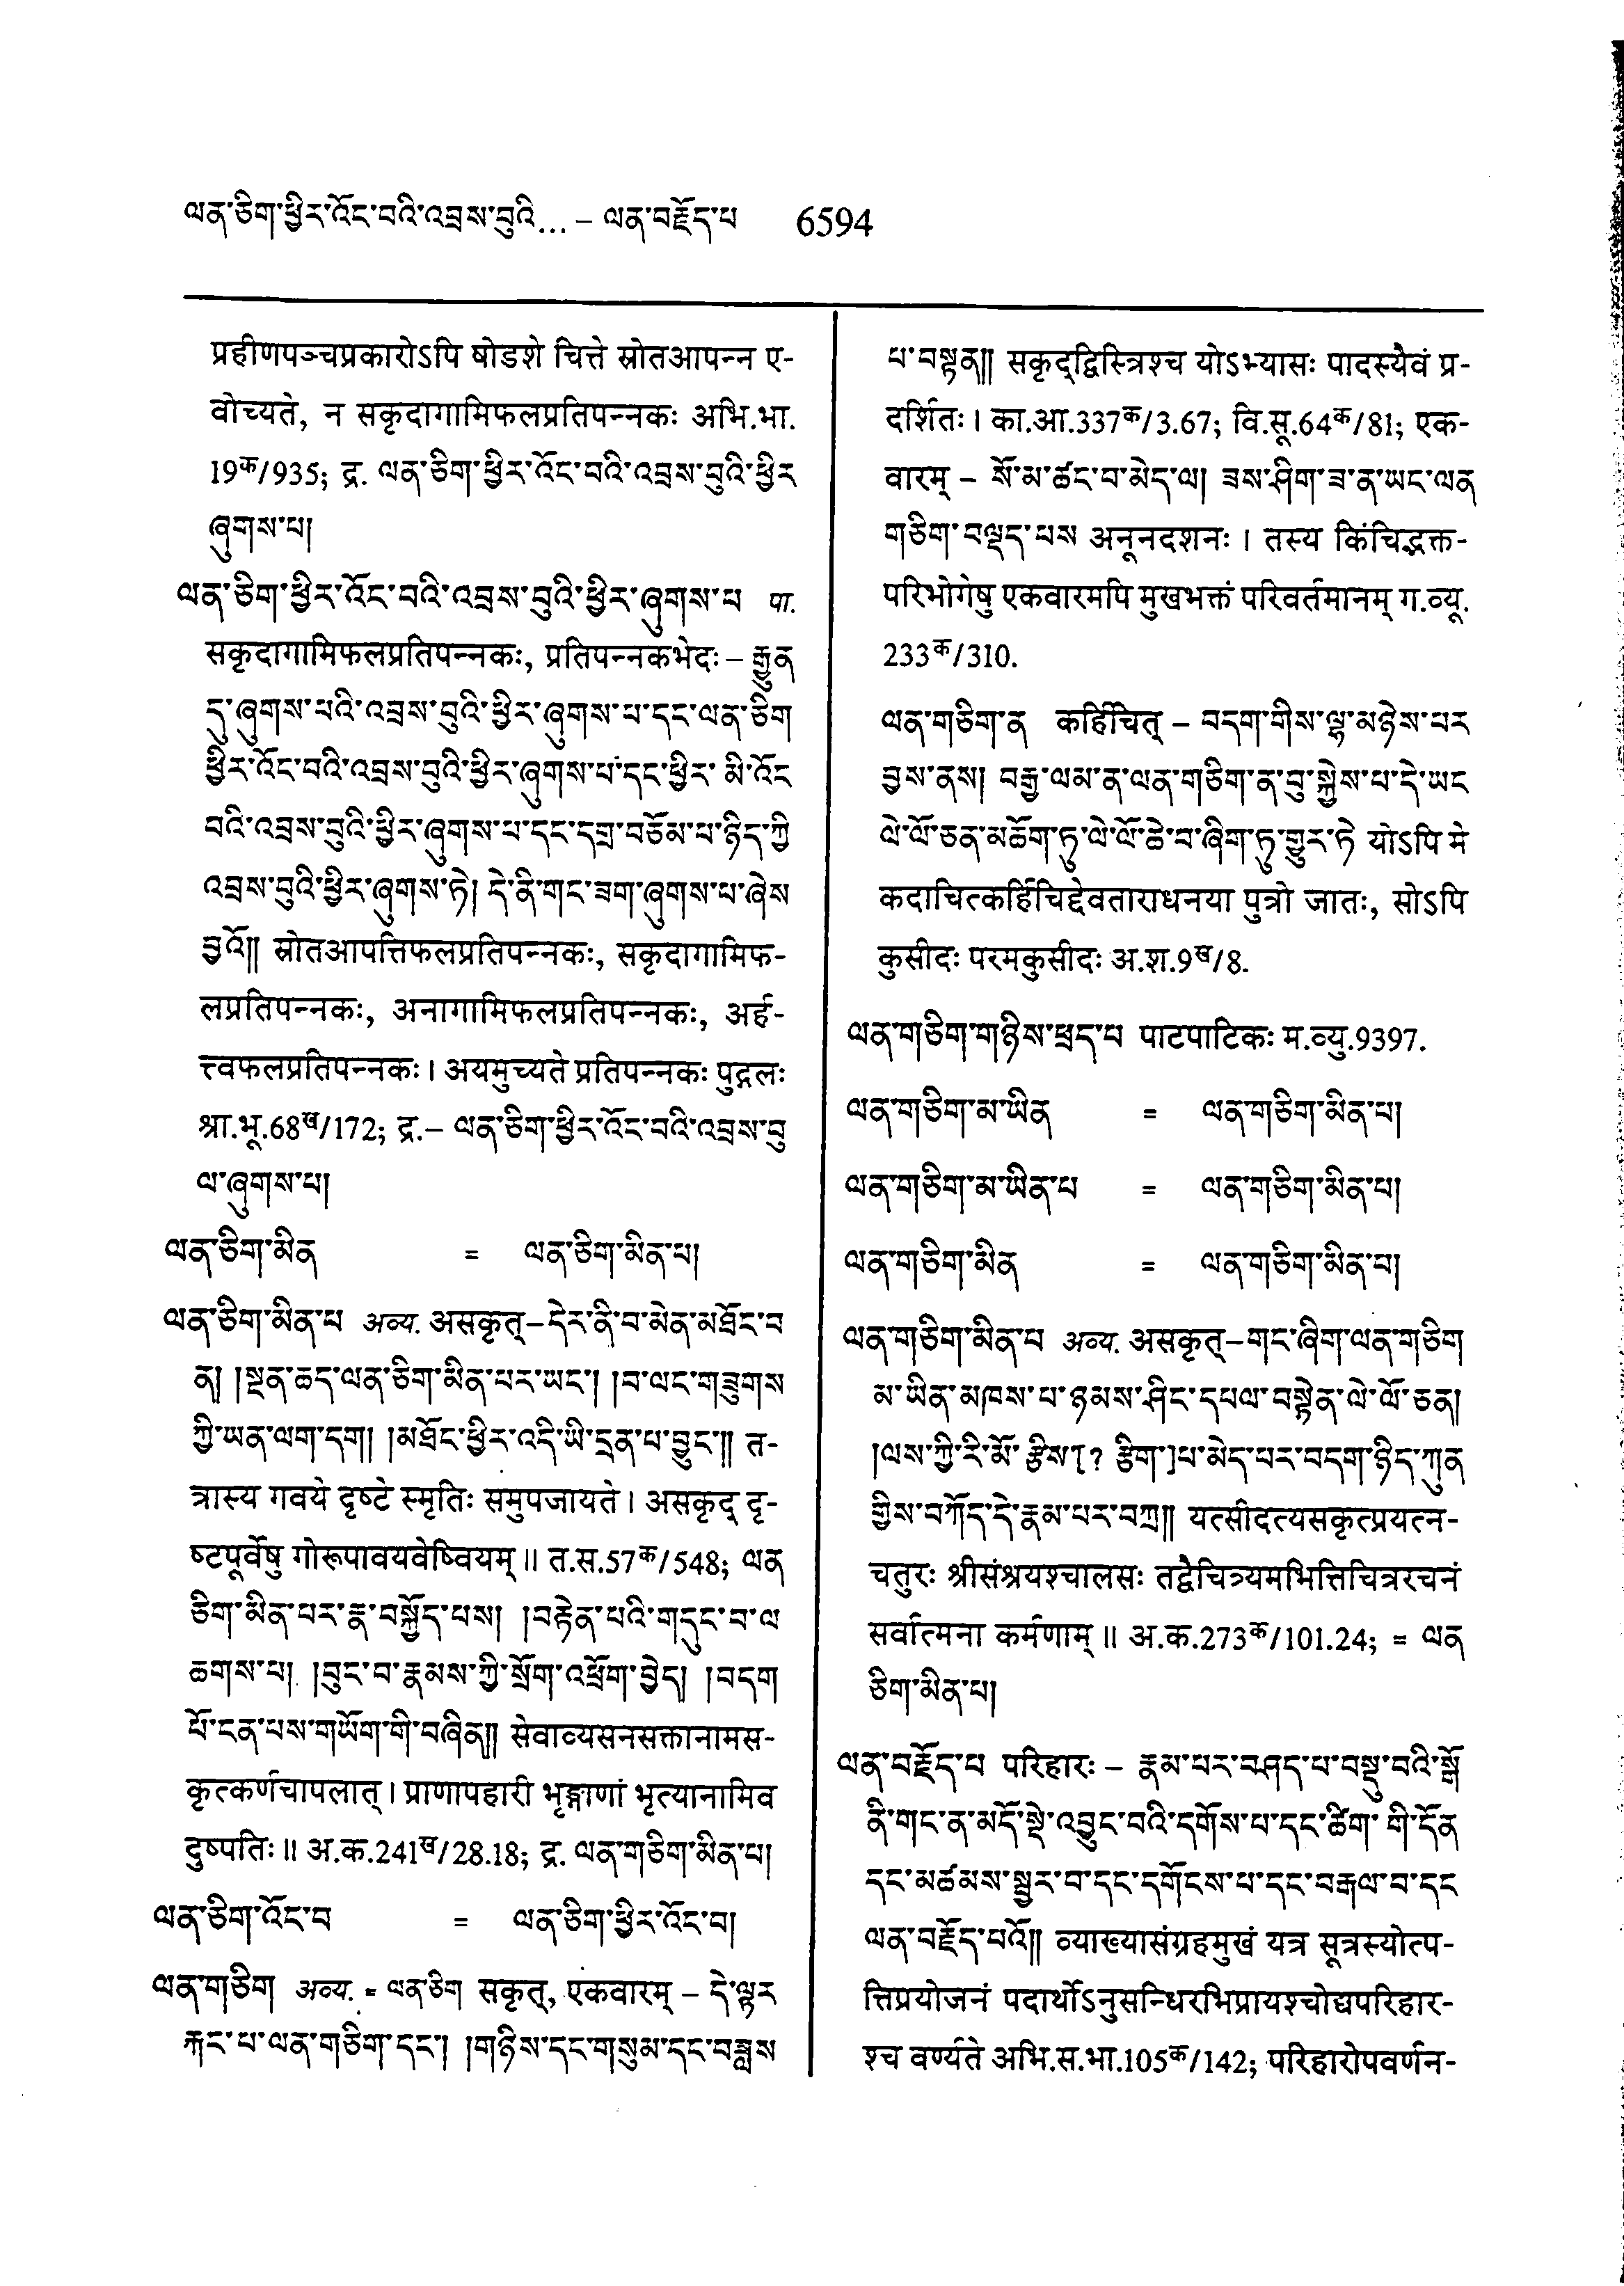 ལན་ཅིག་ཕྱིར་འོང་བའི་འབྲས་བུའི... – ལན་བརྗོད་པ 6594
प्रहीणपञ्चप्रकारोऽपि षोडशे चित्ते स्रोतआपन्न ए-
वोच्यते, न सकृदागामिफलप्रतिपन्नकः अभि.भा.
19क/935; द्र. ལན་ཅིག་ཕྱིར་འོང་བའི་འབྲས་བུའི་ཕྱིར
ཞུགས་པ།
ལན་ཅིག་ཕྱིར་འོང་བའི་འབྲས་བུའི་ཕྱིར་ཞུགས་པ पा.
सकृदागामिफलप्रतिपन्नकः, प्रतिपन्नकभेदः – རྒྱུན
དུ་ཞུགས་པའི་འབྲས་བུའི་ཕྱིར་ཞུགས་པ་དང་ལན་ཅིག
ཕྱིར་འོང་བའི་འབྲས་བུའི་ཕྱིར་ཞུགས་པ་དང་ཕྱིར་ མི་འོང
བའི་འབྲས་བུའི་ཕྱིར་ཞུགས་པ་དང་དགྲ་བཅོམ་པ་ཉིད་ཀྱི
འབྲས་བུའི་ཕྱིར་ཞུགས་ཏེ། དེ་ནི་གང་ཟག་ཞུགས་པ་ཞེས
བྱའོ།། स्रोतआपत्तिफलप्रतिपन्नकः, सकृदागामिफ-
लप्रतिपन्नकः, अनागामिफलप्रतिपन्नकः, अर्ह-
त्त्वफलप्रतिपन्नकः। अयमुच्यते प्रतिपन्नकः पुद्गलः
श्रा.भू.68ख/172; द्र.– ལན་ཅིག་ཕྱིར་འོང་བའི་འབྲས་བུ
ལ་ཞུགས་པ།
ལན་ཅིག་མིན = ལན་ཅིག་མིན་པ།
ལན་ཅིག་མིན་པ अव्य. असकृत्–དེར་ནི་བ་མེན་མཐོང་བ
ན། །སྔན་ཆད་ལན་ཅིག་མིན་པར་ཡང་། །བ་ལང་གཟུགས
ཀྱི་ཡན་ལག་དག། །མཐོང་ཕྱིར་འདི་ཡི་དྲན་པ་བྱུང་།། त-
त्रास्य गवये दृष्टे स्मृतिः समुपजायते। असकृद् दृ-
ष्टपूर्वेषु गोरूपावयवेष्वियम्॥ त.स.57क/548; ལན
ཅིག་མིན་པར་རྣ་བསྐྱོད་པས། །བརྟེན་པའི་གདུང་བ་ལ
ཆགས་པ། །བུང་བ་རྣམས་ཀྱི་སྲོག་འཕྲོག་བྱེད། །བདག
པོ་ངན་པས་གཡོག་གི་བཞིན།། सेवाव्यसनसक्तानामस-
कृत्कर्णचापलात्। प्राणापहारी भृङ्गाणां भृत्यानामिव
दुष्पतिः॥ अ.क.241ख/28.18; द्र. ལན་གཅིག་མིན་པ།
ལན་ཅིག་འོང་བ = ལན་ཅིག་ཕྱིར་འོང་བ།
ལན་གཅིག अव्य. = ལན་ཅིག सकृत्, एकवारम् – དེ་ལྟར
རྐང་པ་ལན་གཅིག་དང་། །གཉིས་དང་གསུམ་དང་བཟླས
པ་བསྟན།། सकृद्द्विस्त्रिश्च योऽभ्यासः पादस्यैवं प्र-
दर्शितः। का.आ.337क/3.67; वि.सू.64क/81; एक-
वारम् – སོ་མ་ཚང་བ་མེད་ལ། ཟས་ཤིག་ཟ་ན་ཡང་ལན
གཅིག་བལྡད་པས अनूनदशनः। तस्य किंचिद्भक्त-
परिभोगेषु एकवारमपि मुखभक्तं परिवर्तमानम् ग.व्यू.
233क/310.
ལན་གཅིག་ན कर्हिचित् – བདག་གིས་ལྷ་མཉེས་པར
བྱས་ནས། བརྒྱ་ལམ་ན་ལན་གཅིག་ན་བུ་སྐྱེས་པ་དེ་ཡང
ལེ་ལོ་ཅན་མཆོག་ཏུ་ལེ་ལོ་ཆེ་བ་ཞིག་ཏུ་གྱུར་ཏེ योऽपि मे
कदाचित्कर्हिचिद्देवताराधनया पुत्रो जातः, सोऽपि
कुसीदः परमकुसीदः अ.श.9ख/8.
ལན་གཅིག་གཉིས་ཕྲད་པ पाटपाटिकः म.व्यु.9397.
ལན་གཅིག་མ་ཡིན = ལན་གཅིག་མིན་པ།
ལན་གཅིག་མ་ཡིན་པ = ལན་གཅིག་མིན་པ།
ལན་གཅིག་མིན = ལན་གཅིག་མིན་པ།
ལན་གཅིག་མིན་པ अव्य. असकृत्–གང་ཞིག་ལན་གཅིག
མ་ཡིན་མཁས་པ་ཉམས་ཤིང་དཔལ་བསྟེན་ལེ་ལོ་ཅན།
།ལས་ཀྱི་རི་མོ་རྩིས[? རྩིག་]པ་མེད་པར་བདག་ཉིད་ཀུན
གྱིས་བཀོད་དེ་རྣམ་པར་བཀྲ།། यत्सीदत्यसकृत्प्रयत्न-
चतुरः श्रीसंश्रयश्चालसः तद्वैचित्र्यमभित्तिचित्ररचनं
सर्वात्मना कर्मणाम्॥ अ.क.273क/101.24; = ལན
ཅིག་མིན་པ།
ལན་བརྗོད་པ परिहारः – རྣམ་པར་བཤད་པ་བསྡུ་བའི་སྒོ
ནི་གང་ན་མདོ་སྡེ་འབྱུང་བའི་དགོས་པ་དང་ཚིག་ གི་དོན
དང་མཚམས་སྦྱར་བ་དང་དགོངས་པ་དང་བརྒལ་བ་དང
ལན་བརྗོད་པའོ།། व्याख्यासंग्रहमुखं यत्र सूत्रस्योत्प-
त्तिप्रयोजनं पदार्थोऽनुसन्धिरभिप्रायश्चोद्यपरिहार-
श्च वर्ण्यते अभि.स.भा.105क/142; परिहारोपवर्णन-